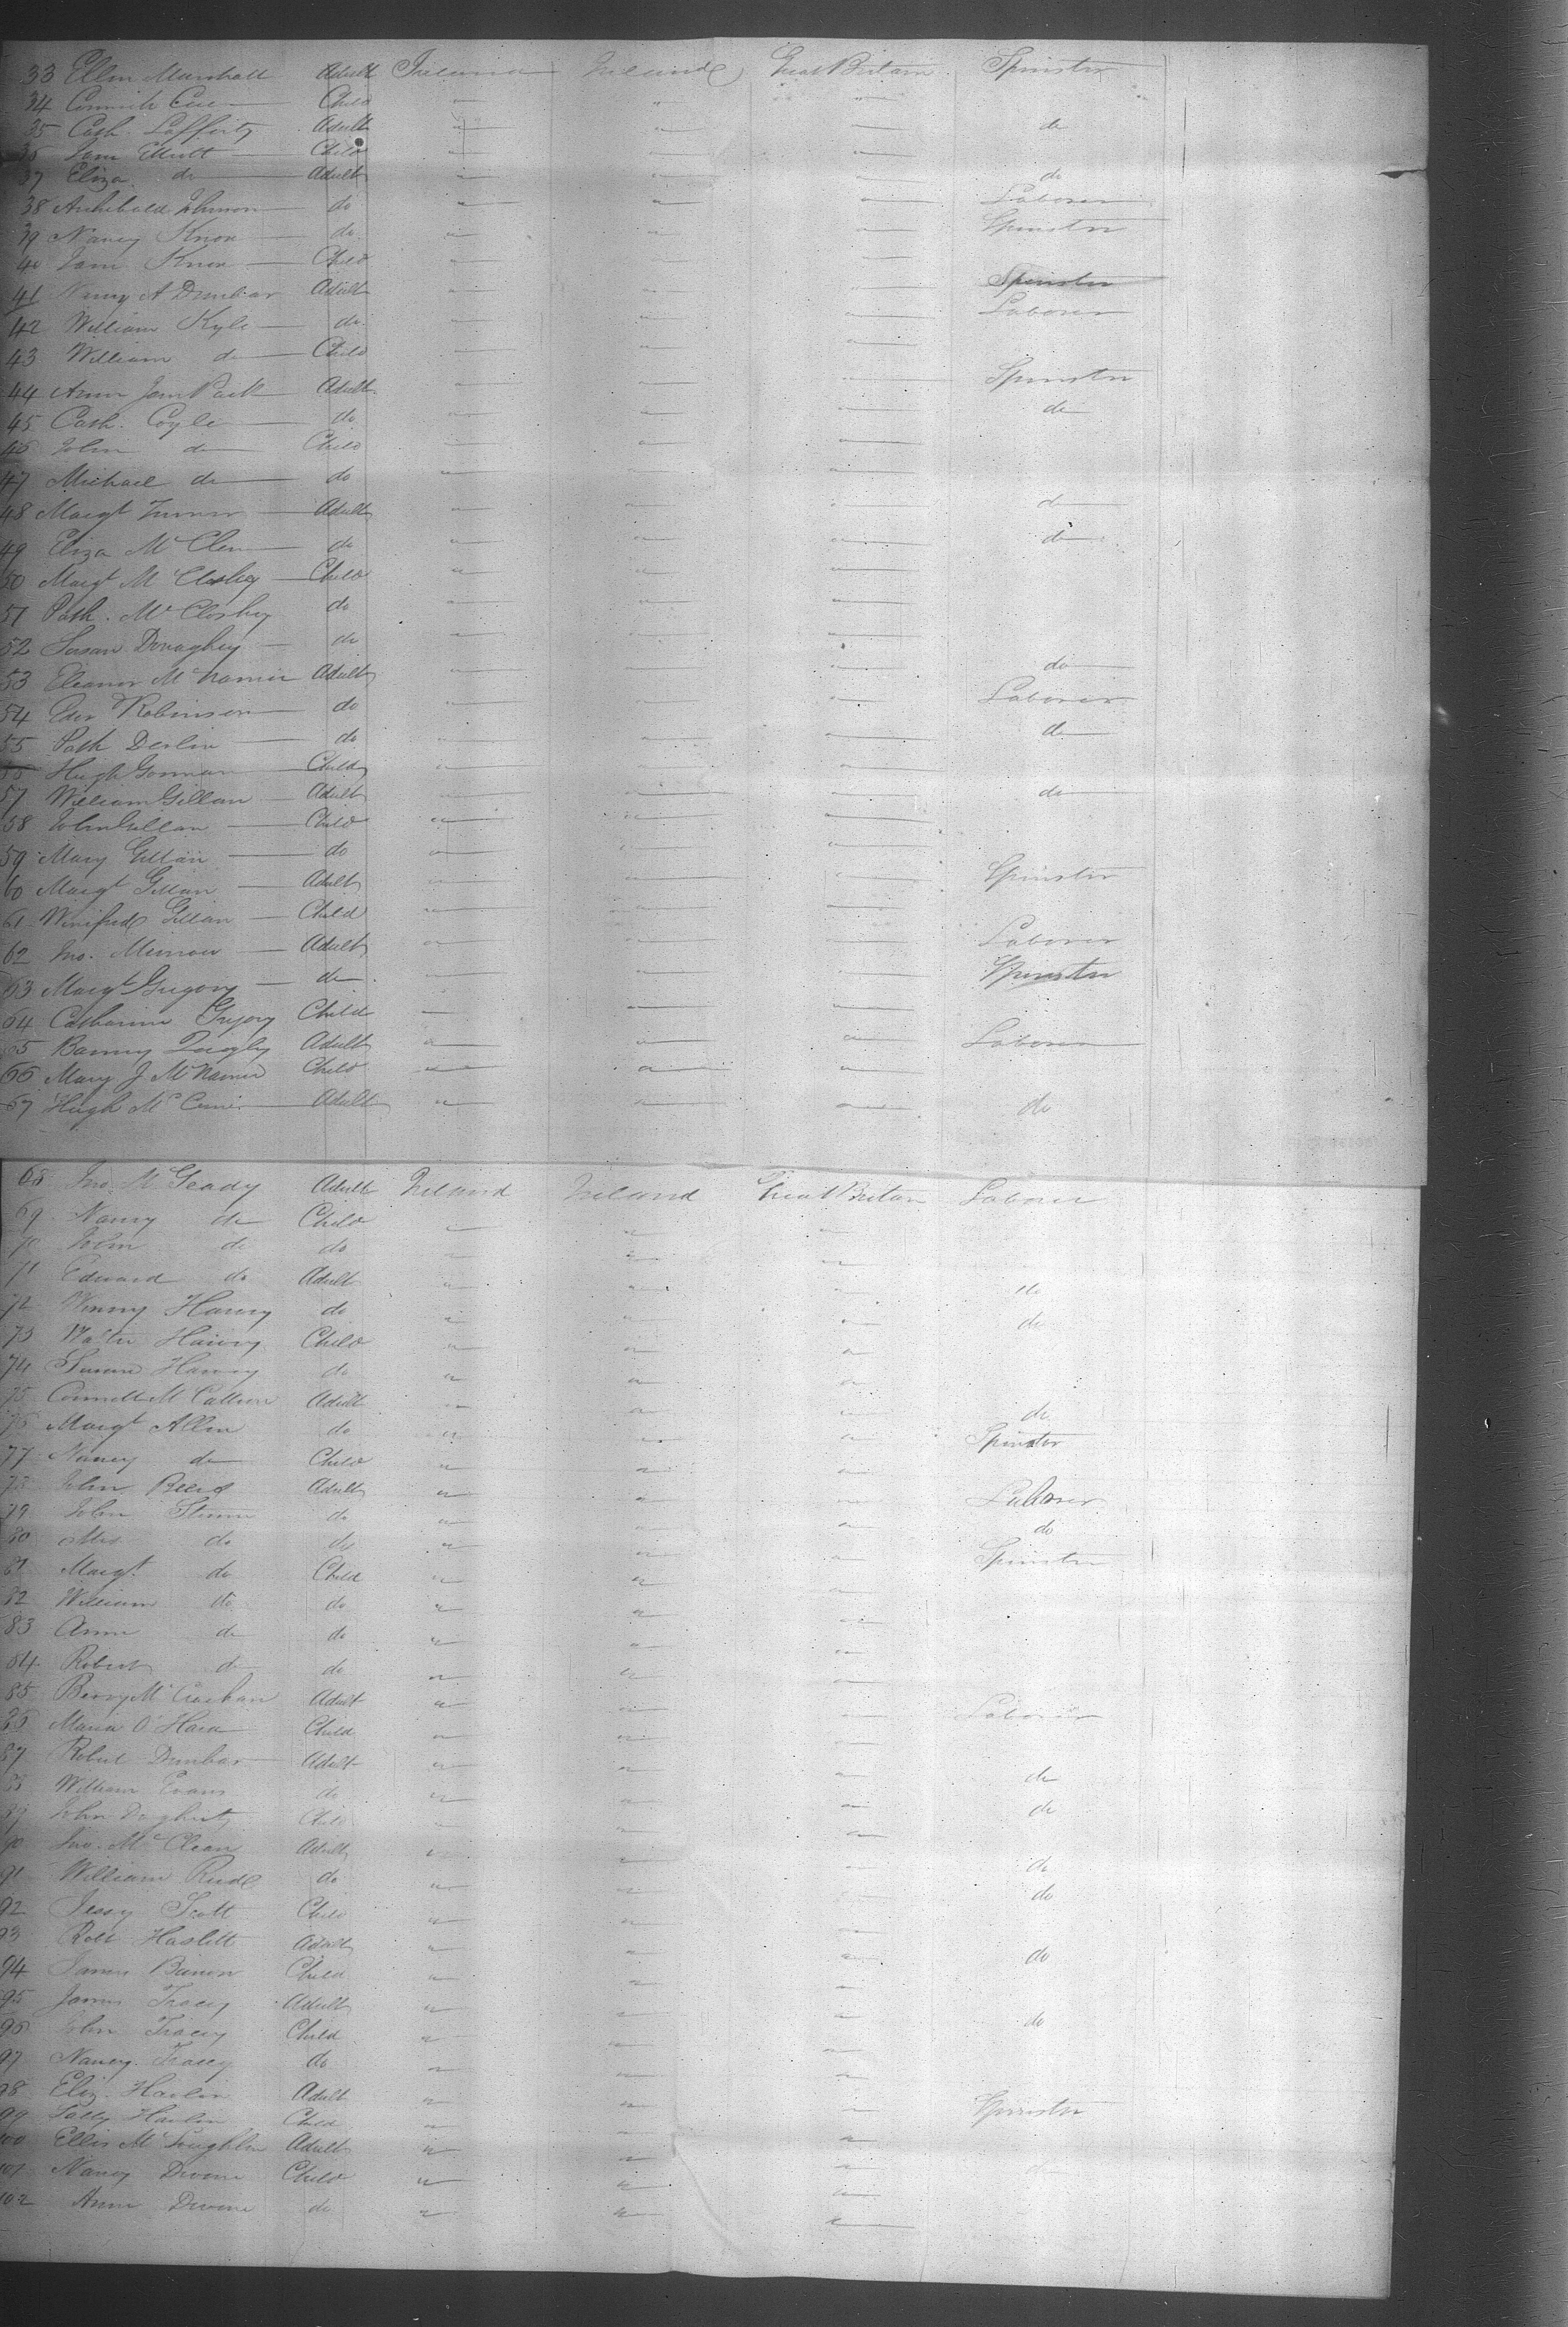 33 Ellen Marshall Adult Ireland Ireland Great Britain Spinster
34 Child " " "
35 Cath. Lafferty Adult " " " do
36 Child " " "
37 Eliza do Adult " " " do
38 Archibald Johnson do " " " Laborer
39 Nancy Knox do " " " Spinster
40 Jane Knox Child " " "
41 Nancy A Dunbar Adult " " " Spinster
42 William Kyle do " " " Laborer
43 William do Child " " "
44 Ann Jane Adult " " " Spinster
45 Cath. Coyle do " " " do
46 John do Child " " "
47 Michael do do " " "
48 Margt Turner Adult " " " do
49 Eliza do " " " do
50 Margt McCloskey Child " " "
51 Patk. McCloskey do " " "
52 Susan Donaghey do " " "
53 Eleanor McNamee Adult " " " do
54 Robinson do " " " Laborer
55 Patk Devlin do " " " do
56 Hugh Gorman Child " " "
57 William Gillan Adult " " " do
58 John Gillan Child " " "
59 Mary Gillan do " " "
60 Margt Gillan Adult " " " Spinster
61 Winifred Gillan Child " " "
62 Jno. Adult " " " Laborer
63 Margt Gregory do " " " Spinster
64 Catharine Gregory Child " " "
65 Barney Quigley Adult " " " Laborer
66 Mary J McNamee Child " " "
67 Hugh Adult " " " do
68 Jno. McGeady Adult Ireland Ireland Great Britain Laborer
69 Nancy do Child " " "
70 John do do " " "
71 Edward do Adult " " " do
72 Harvey do " " " do
73 Walter Harvey Child " " "
74 Harvey do " " "
75 Connell Adult " " " do
76 Margt Allen do " " " Spinster
77 Nancy do Child " " "
78 John Reed Adult " " " Laborer
79 John do " " " do
80 Mrs do do " " " Spinster
81 Margt do Child " " "
82 William do do " " "
83 Anne do do " " "
84 Robert do do " " "
85 Adult " " " Laborer
86 Maria O'Hara Child " " "
87 Robert Dunbar Adult " " " do
88 William Evans do " " " do
89 John Child " " "
90 Jno. McClean Adult " " " do
91 William do " " " do
92 Jessy Scott Child " " "
93 Robt Haslett Adult " " " do
94 James Child " " "
95 James Tracey Adult " " " do
96 John Tracey Child " " "
97 Nancy Tracey do " " "
98 Eliz. Adult " " " Spinster
99 Sally Child " " "
100 Ellis McLoughlin Adult " " "
101 Nancy Devine Child " " "
102 Ann Devine do " " "